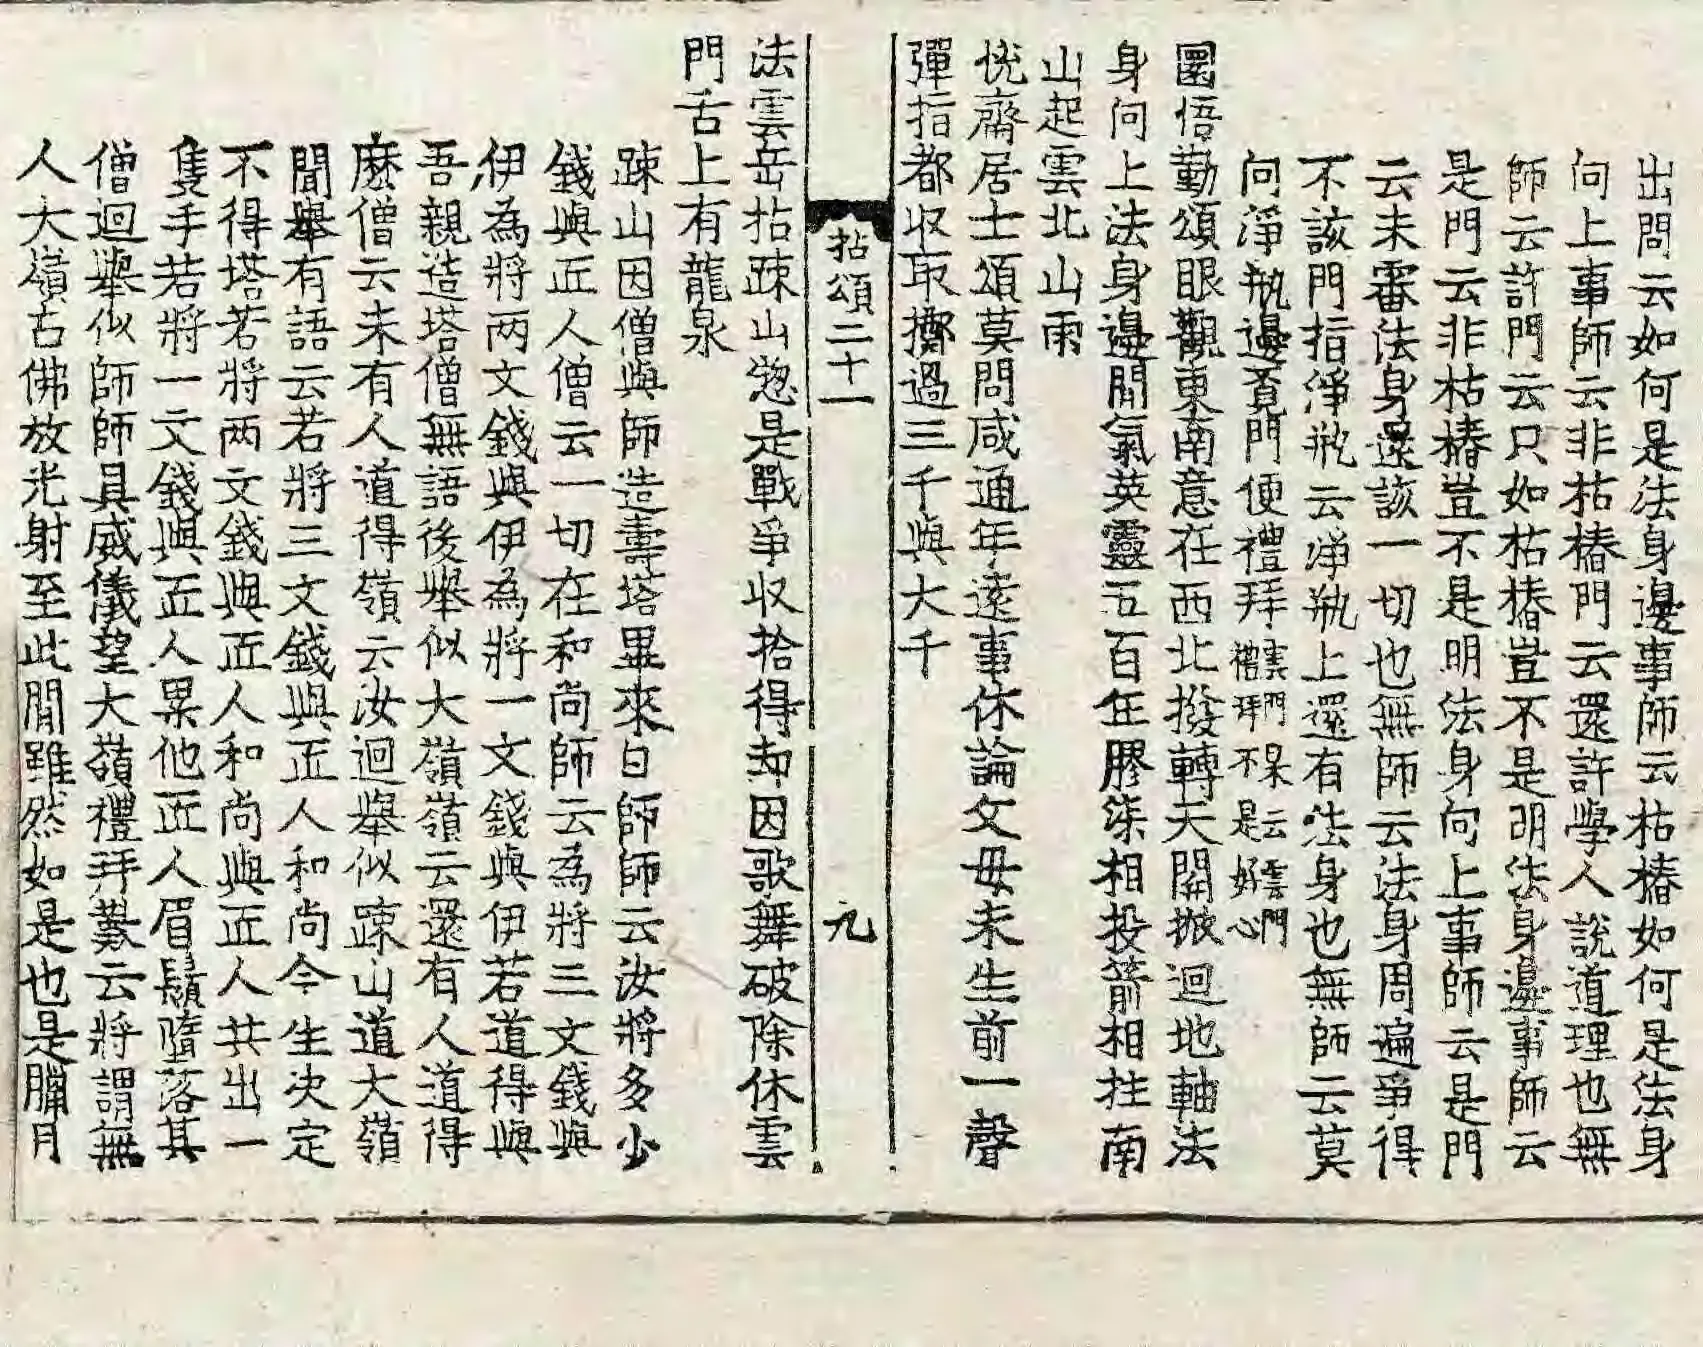 出問云如何是法身邊事師云枯樁如何是法身
向上事師云非枯樁門云還許學人說道理也無
師云許門云只如枯樁豈不是明法身邊事師云
是門云非枯樁豈不是明法身向上事師云是門
云未審法身還該一切也無師云法身周遍爭得
不該門指淨甁云淨甁上還有法身也無師云莫
向淨甁邊覔門便禮拜雲門杲云雲門禮拜不是好心
圜悟勤頌眼觀東南意在西北撥轉天關掀迴地軸法
身向上法身邊間氣英靈五百年膠柒相投箭相拄南
山起雲北山雨
恱齋居士頌莫問咸通年遠事休論父母未生前一聲
彈指都収取擲過三千與大千
拈頌二十一
九
法雲岳拈踈山惣是戰爭収拾得却因歌舞破除休雲
門舌上有龍泉
踈山因僧與師造壽塔畢來白師師云汝將多少
錢與匠人僧云一切在和尚師云為將三文錢與
伊為將两文錢與伊為將一文錢與伊若道得與
吾親造塔僧無語後舉似大嶺嶺云還有人道得
麽僧云未有人道得嶺云汝迴舉似踈山道大嶺
聞舉有語云若將三文錢與匠人和尚今生決定
不得塔若將两文錢與匠人和尚與匠人共出一
隻手若將一文錢與匠人累他匠人眉鬚墮落其
僧迴舉似師師具威儀望大嶺禮拜歎云將謂無
人大嶺古佛放光射至此間雖然如是也是臘月